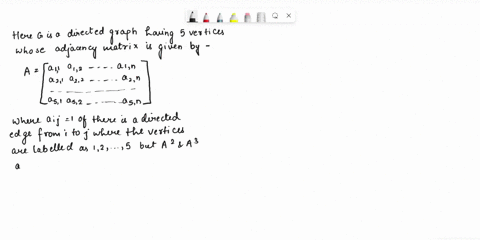 Here G is a directed graph having 5 vertices
whose adjacency matrix is given by -
A = [ a1,1 a1,2 ---- a1,n
a2,1 a2,2 ---- a2,n
---------------
a5,1 a5,2 ------ a5,n ]
where aij = 1 of there is a directed
edge from i to j where the vertices
are labelled as 1,2,...,5 but A² & A³
a